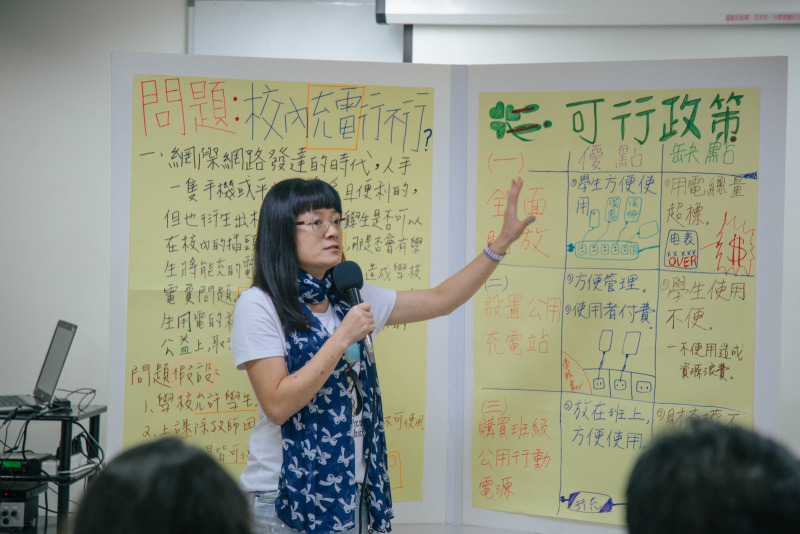 問題：校內充電行不行?
一、網際網路發達的時代，人手
一隻手機或平
且便利的，
但也衍生出
學生是否可以
在校內的插
用是否會有學
生將能充的電
造成學校
電費問題
生用電的
公益上取
問題假設：
1、學校允許學生
2、上課除教師因
不可使用
可行政策
優點
缺點
(一)
全面
開放
學生方便使
用
用電總量
超標。
電表
OVER
(二)
設置公用
充電站
方便管理。
使用者付費。
學生使用
不便。
一不使用造成
資源浪費。
(三)
購買班級
公用行動
電源
放在班上，
方便使用。
行充